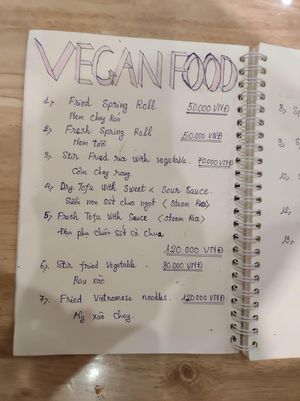 VEGAN FOOD
1, Fried Spring Roll 50.000 VNĐ
Nem chay rán
2, Fresh Spring Roll 50.000 VNĐ
Nem tươi
3, Stir Fried rice with vegetable. 70000 VNĐ
Cơm chay rang
4, Dry Tofu with Sweet & Sour Sauce.
Sườn non sốt chua ngọt (Steam Rice)
5, Fresh Tofu with Sauce (Steam Rice)
Đậu phụ chiên sốt cà chua
120.000 VNĐ
6, Stir fried Vegetable. 80.000 VNĐ
Rau xào
7, Fried Vietnamese noodles. 120.000 VNĐ
Mỳ xào chay.
8, S
9, S
10,
12,
13,